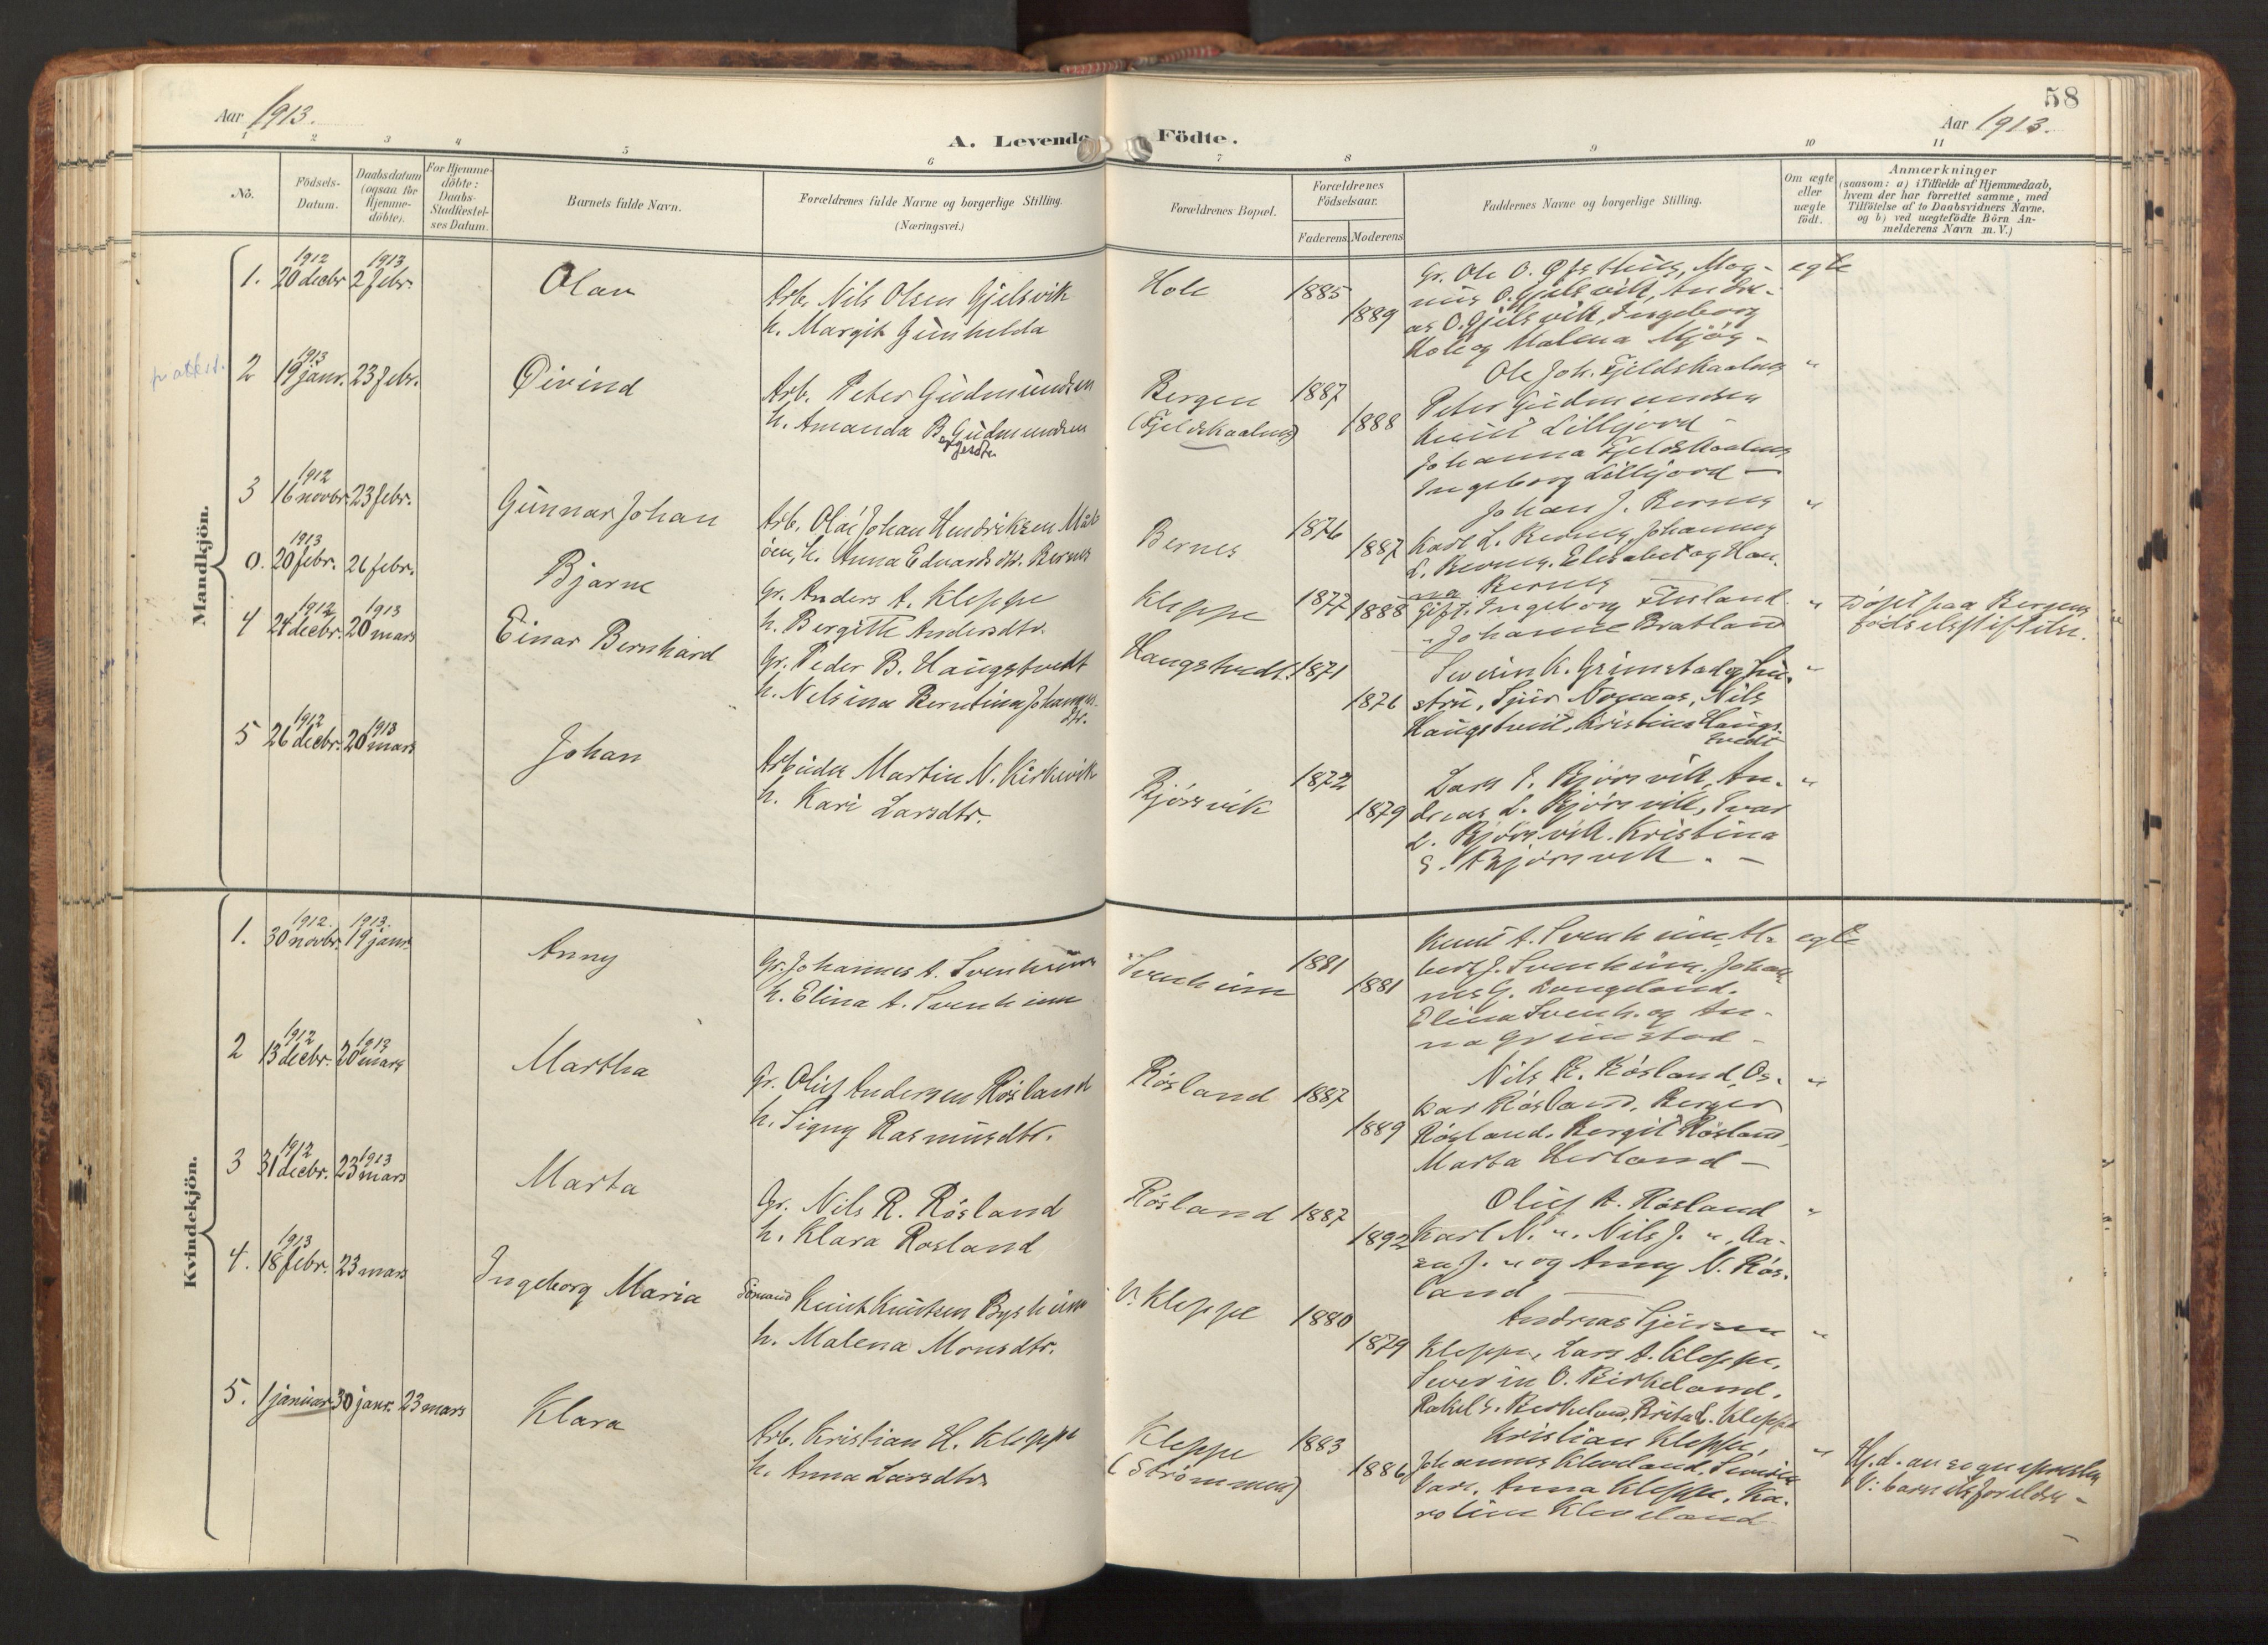 58
Aar 1913.
A. Levende Födte.
Aar 1913.
1 2 3 4 5 6 7 8 9 10 11
No.
Födsels-
Datum.
Daabsdatum
(ogsaa for
Hjemme-
döbte).
For Hjemme-
döbte:
Daabs-
Stadfæstel-
ses Datum.
Barnets fulde Navn.
Forældrenes fulde Navne og borgerlige Stilling.
(Næringsvei.)
Forældrenes Bopæl.
Forældrenes
Födselsaar.
Faderens. Moderens.
Faddernes Navne og borgerlige Stilling.
Om ægte
eller
uægte
födt.
Anmærkninger
(saasom: a) i Tilfælde af Hjemmedaab,
hvem der har forrettet samme, med
Tilföielse af to Daabsvidners Navne,
og b) ved uægtefödte Börn An-
melderens Navn m. V.)
Mandkjön.
1912 1913
1. 20 decbr. 2 febr.
Olav
Arb. Nils Olsen Gjelsvik
h. Margit Gunhilda
Hole
1885
1889
Gr. Ole O. Østhus, Mag-
nus O. Gjelsvik, Andre-
as O. Gjelsvik, Ingeborg
Hole og Malena Mjøs -
egte
1913
2 19 janr. 23 febr.
Øivind
Arb. Peter Gudmundsen
h. Amanda B. Gudmundsen
Bergen
(Fjeldskaalnes)
1887
1888
Ole Joh. Fjeldskaalnes
Peter Gudmundsen
Knut Lillejord -
Johanna Fjeldskaalnes
Ingeborg Lillejord -
"
1912
3 16 novbr. 23 febr.
Gunnar Johan
Arb. Olai Johan Hendriksen
h. Anna Edvardsdtr. Bernes
Bernes
1876
1887
Johan J. Bernes
Karl L. Bernes, Johannes
L. Bernes, Elisabet og Han-
na Bernes
"
1913
0. 20 febr. 26 febr.
Bjarne
Gr. Anders A. Kleppe
h. Bergitte Andersdtr.
Kleppe
1877
1888
Gift. Ingeborg
" Johanne Bratland
"
Døpt paa Bergens
fødselsstiftelse.
1912 1913
4 24 decbr. 20 mars
Einar Bernhard
Gr. Peder B. Haugstvedt
h. Nelsina Berntina Johannes-
dtr.
Haugstvedt
1871
1876
Severin K. Grimstad og hu-
stru, Sjur Nomaas, Nils
Haugstvedt, Kristina Haugs-
tvedt
"
1912 1913
5 26 decbr. 20 mars
Johan
Arbeider Martin N. Kirkevik
h. Kari Larsdtr.
Bjørsvik
1872
1879
Lars E. Bjørsvik, An-
dreas L. Bjørsvik, Ivar
L. Bjørsvik. Kristina
E. Bjørsvik. -
"
Kvindekjön.
1912. 1913.
1. 30 novbr. 19 janr.
Anny
Gr. Johannes A. Svenheim
h. Elina A. Svenheim
Svenheim
1881
1881
Knut A. Svenheim, Al-
bert J. Svenheim. Johan-
nes G.
Elina Svenh. og An-
na Grimstad -
egte
1912 1913
2 13 decbr. 20 mars
Martha
Gr. Oluf Andersen Røsland
h. Signy Rasmusdtr.
Røsland
1887
1889
Nils R. Røsland, Os-
kar Røsland, Berger
Røsland, Bergit Røsland,
Marta Herland -
"
1912 1913
3 31 decbr. 23 mars
Marta
Gr. Nils R. Røsland
h. Klara Røsland
Røsland
1887
1892
Oluf A. Røsland
Karl N. ". Nils J. ", Aa-
sa J. " og Anny N. Røs-
land -
"
1913
4. 18 febr. 23 mars
Ingeborg Maria
Sømand Knut Knutsen Bysheim
h. Malena Monsdtr.
V. Kleppe
1880
1879
Andreas Sjursen
Kleppe, Lars A. Kleppe,
Severin O. Birkeland,
Rakel S. Birkeland, Brita L. Kleppe
"
5. 1 januar 30 janr. 23 mars
Klara
Arb. Kristian H. Kleppe
h. Anna Larsdtr.
Kleppe
(Strømmen)
1883
1886
Kristian Kleppe,
Johannes Kleveland, Severin
Anna Kleppe, Ka-
roline Kleveland
"
Hj. d. av sogneprest
V: barnets forældre -